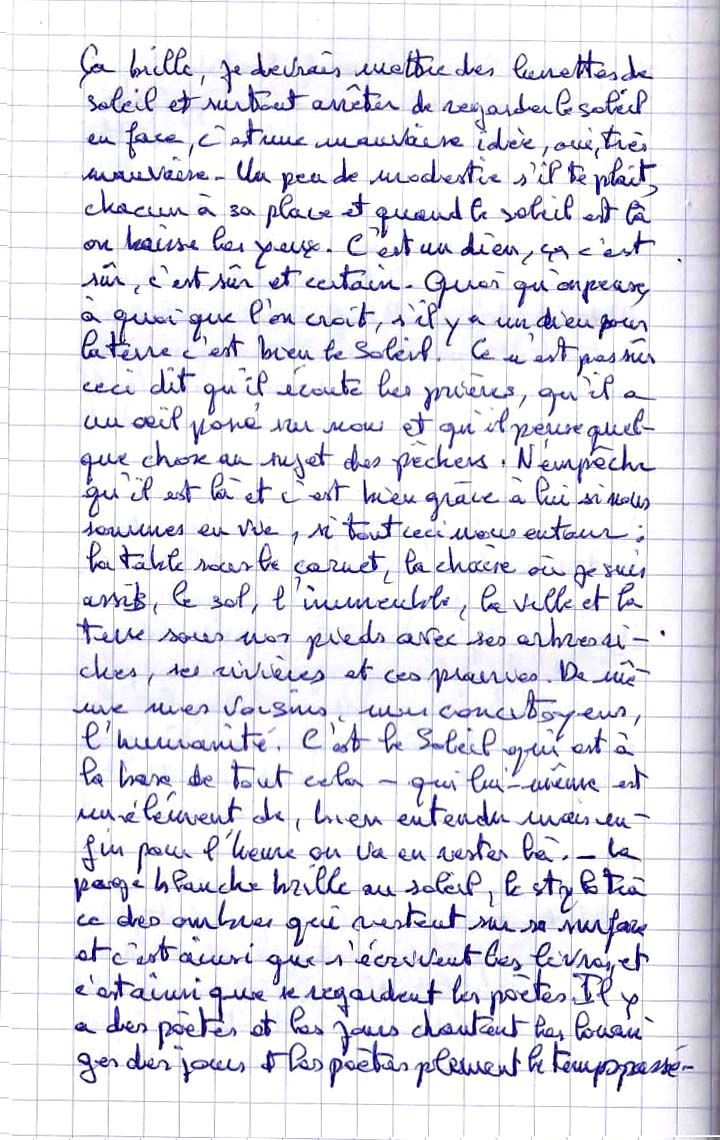 Ça brille, je devrais mettre des lunettes de
soleil et surtout arrêter de regarder le soleil
en face, c'est une mauvaise idée, oui, très
mauvaise - Un peu de modestie s'il te plait,
chacun à sa place et quand le soleil est là
on baisse les yeux. C'est un dieu, ça c'est
sûr, c'est sûr et certain. Quoi qu'on pense,
à quoi que l'on croit, s'il y a un dieu pour
la terre c'est bien le Soleil. Ce n'est pas sûr
ceci dit qu'il écoute les prières, qu'il a
un œil posé sur nous et qu'il pense quel-
que chose au sujet des pêchers. N'empêche
qu'il est là et c'est bien grâce à lui si nous
sommes en vie, si tout ceci nous entoure :
la table sous le carnet, la chaise où je suis
assis, le sol, l'immeuble, la ville et la
terre sous nos pieds avec ses arbres ri-
ches, ses rivières et ces prairies. De mê-
me mes voisins, mes concitoyens,
l'humanité. C'est le Soleil qui est à
la base de tout cela - qui lui-même est
un élément de, bien entendu mais en-
fin pour l'heure on va en rester là. - La
page blanche brille au soleil, le stylo tra
ce des ombres qui restent sur sa surface
et c'est ainsi que s'écrivent les livres, et
c'est ainsi que se regardent les poètes. Il y
a des poètes et les jours chantent les louan
ges des jours les poètes pleurent le temps passé -